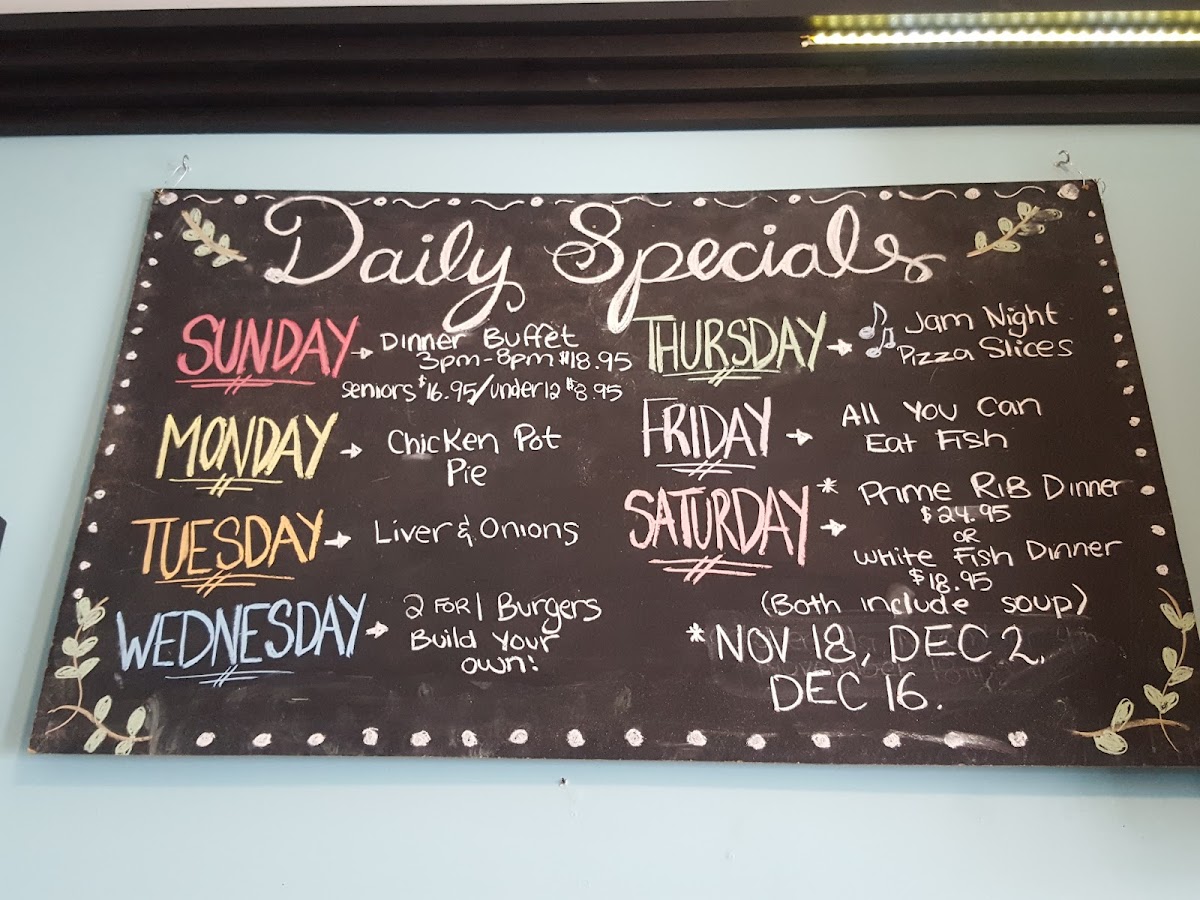 Daily Specials
SUNDAY → Dinner Buffet
3pm-8pm $18.95
seniors $16.95/under 12 $8.95
MONDAY → Chicken Pot
Pie
TUESDAY → Liver & Onions
WEDNESDAY → 2 FOR 1 Burgers
Build Your
own!
THURSDAY → Jam Night
Pizza Slices
FRIDAY → All You Can
Eat Fish
SATURDAY * → Prime RIB Dinner
$24.95
OR
White Fish Dinner
$18.95
(Both include soup)
* NOV 18, DEC 2,
DEC 16.